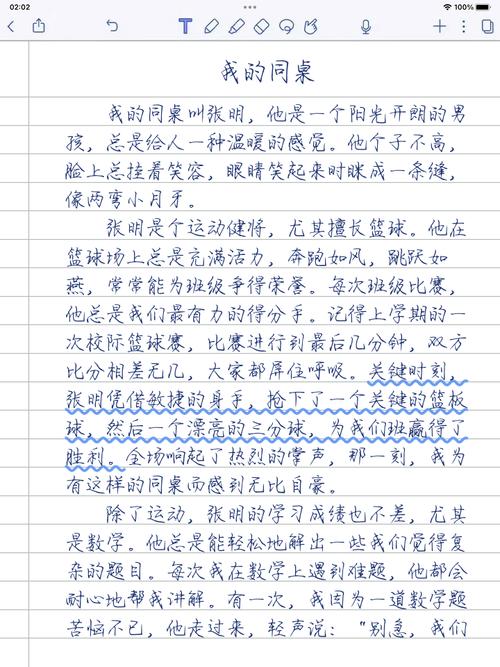 02:02
100%
我的同桌
我的同桌叫张明，他是一个阳光开朗的男
孩，总是给人一种温暖的感觉。他个子不高，
脸上总挂着笑容，眼睛笑起来时眯成一条缝，
像两弯小月牙。
张明是个运动健将，尤其擅长篮球。他在
篮球场上总是充满活力，奔跑如风，跳跃如
燕，常常能为班级争得荣誉。每次班级比赛，
他总是我们最有力的得分手。记得上学期的一
次校际篮球赛，比赛进行到最后几分钟，双方
比分相差无几，大家都屏住呼吸。关键时刻，
张明凭借敏捷的身手，抢下了一个关键的篮板
球，然后一个漂亮的三分球，为我们班赢得了
胜利。全场响起了热烈的掌声，那一刻，我为
有这样的同桌而感到无比自豪。
除了运动，张明的学习成绩也不差，尤其
是数学。他总是能轻松地解出一些我们觉得复
杂的题目。每次我在数学上遇到难题，他都会
耐心地帮我讲解。有一次，我因为一道数学题
苦恼不已，他走过来，轻声说："别急，我们